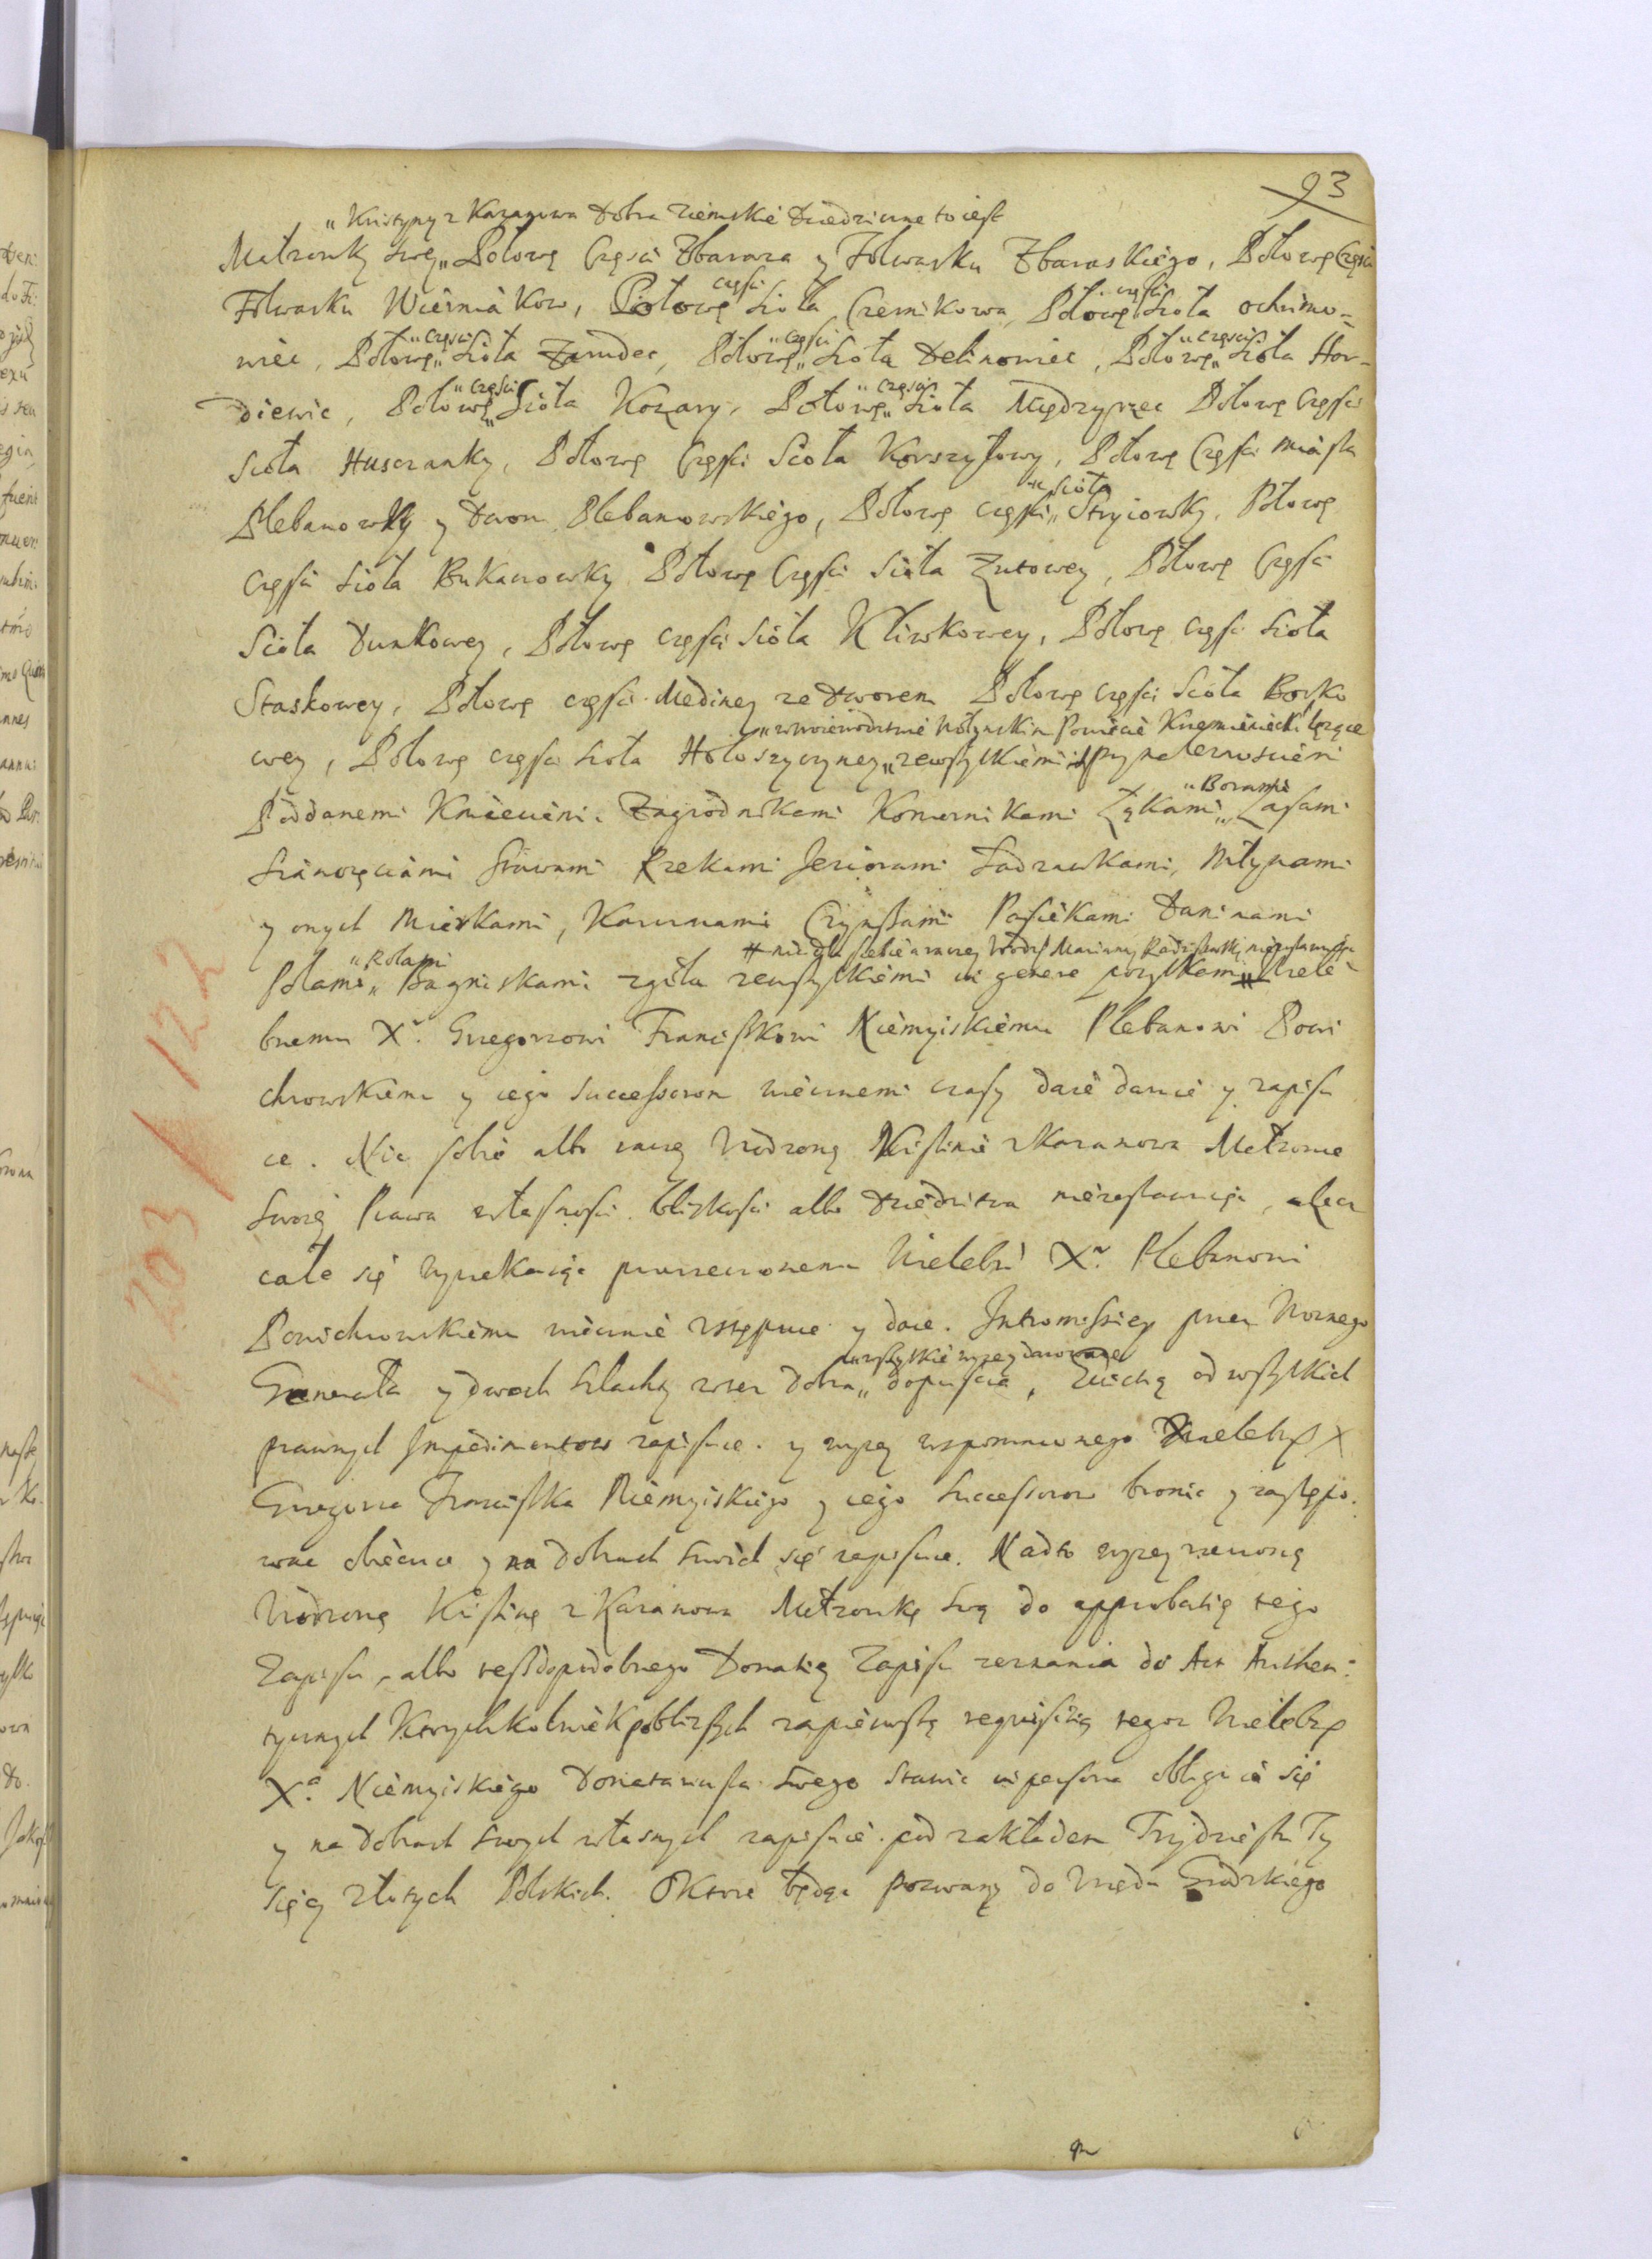 93
„ Kristyny z Kazanowa Dobra Ziemskie Dziedziczne to iest
Małzonky swey „ Połowę Częsci Zbaraza y Folwarku Zbaraskiego, Połowę Częsci
Folwarku Wierniakow, Połowę części Sioła Czernikowa, Połowę części Sioła ochrimo-
wiec, Połowę „ Części Sioła Zarudec, Połowę „ Części Sioła Delinowiec, Połowę „ Części Sioła Hor-
diewic, Połowę „ Części Sioła Kozary, Połowę „ Części Sioła Międzyrzec Połowę Części
Sioła Husczanky, Połowę Części Sioła Korszyłowy, Połowę Części Miasta
Plebanowky y Dworu Plebanowskiego, Połowę części „ Sioła Stryiowky, Połowę
Części Sioła Bukanowky Połowę Części Sioła Zutowey, Połowę Części
Sioła Dunkowey, Połowę części Sioła Kliwkowey, Połowę części Sioła
Staskowey, Połowę części Mediney ze Dworem Połowę części Sioła Borko
„ w woiewodztwie wołynskim Powiecie Krzemienieck: lezące
wey, Połowę części Sioła Hołoszyczyney „ zewszytkiemi przynaleznosciemi
Poddanemi Kmieciemi Zagrodnikami Komornikami Łąkami „ Borami Lasami
Sianozęciami Stawami Rzekami Jeziorami Sadzawkami, Młynami
y onych Miarkami, Karczmami Czynszami Pasiekami Daninami
# nic dla siebie Marianny niezostawuiąc
Polami „ Rolami Bagniskami zgoła zewszytkiemi in genere pozytkami # Wiele-
bnemu Xº. Grzegorzowi Franciszkowi Niemyiskiemu Plebanowi Powi
chrowskiemu y iego Successorom wiecznemi czasy daie daruie y zapisu
ie. Nic sobie albo raczey Urodzoney Kristinie z Kazanowa Małzonce
Swoiey Prawa własności bliskości albo Dziedzictwa niezostawuiąc, alecz
cale się wyrzekaiąc pomienionemu Wielebn: Xº. Plebanowi
Powichrowskiemu wiecznie wstępuie y daie. Intromissiey przez Woznego
Generała y dwoch Szlachty wzez Dobra „ wszytkie wyzey darowane dopuscie, Ewictią od wszytkich
prawnych Impedimentow zapisuie. y wyzey wspomnionego Wieleb: X
Grzegorza Franciszka Niemyiskiego y iego Successorow bronic y zastępo.
wac obiecuie y na Dobrach swoich się zapisuie. Nadto wyzey rzeczoną
Urodzoną Kristinę z Kazanowa Małzonkę swą do approbatię tego
Zapisu, albo tesz podobnego Donatię Zapisu zeznania do Act Authen:
tycznych Ktorychkolwiek poblizszych zapierwszą requisitią tegoz Wieleb:
Xª. Niemyiskiego Donatariusza swego stawic in persona obliguie się
y na Dobrach swych własnych zapisuie. pod zakładem Trzydziestu Ty
sięcy złotych Polskich. O Ktore będąc pozwany do Urzędu Grodzkiego
203 / 122